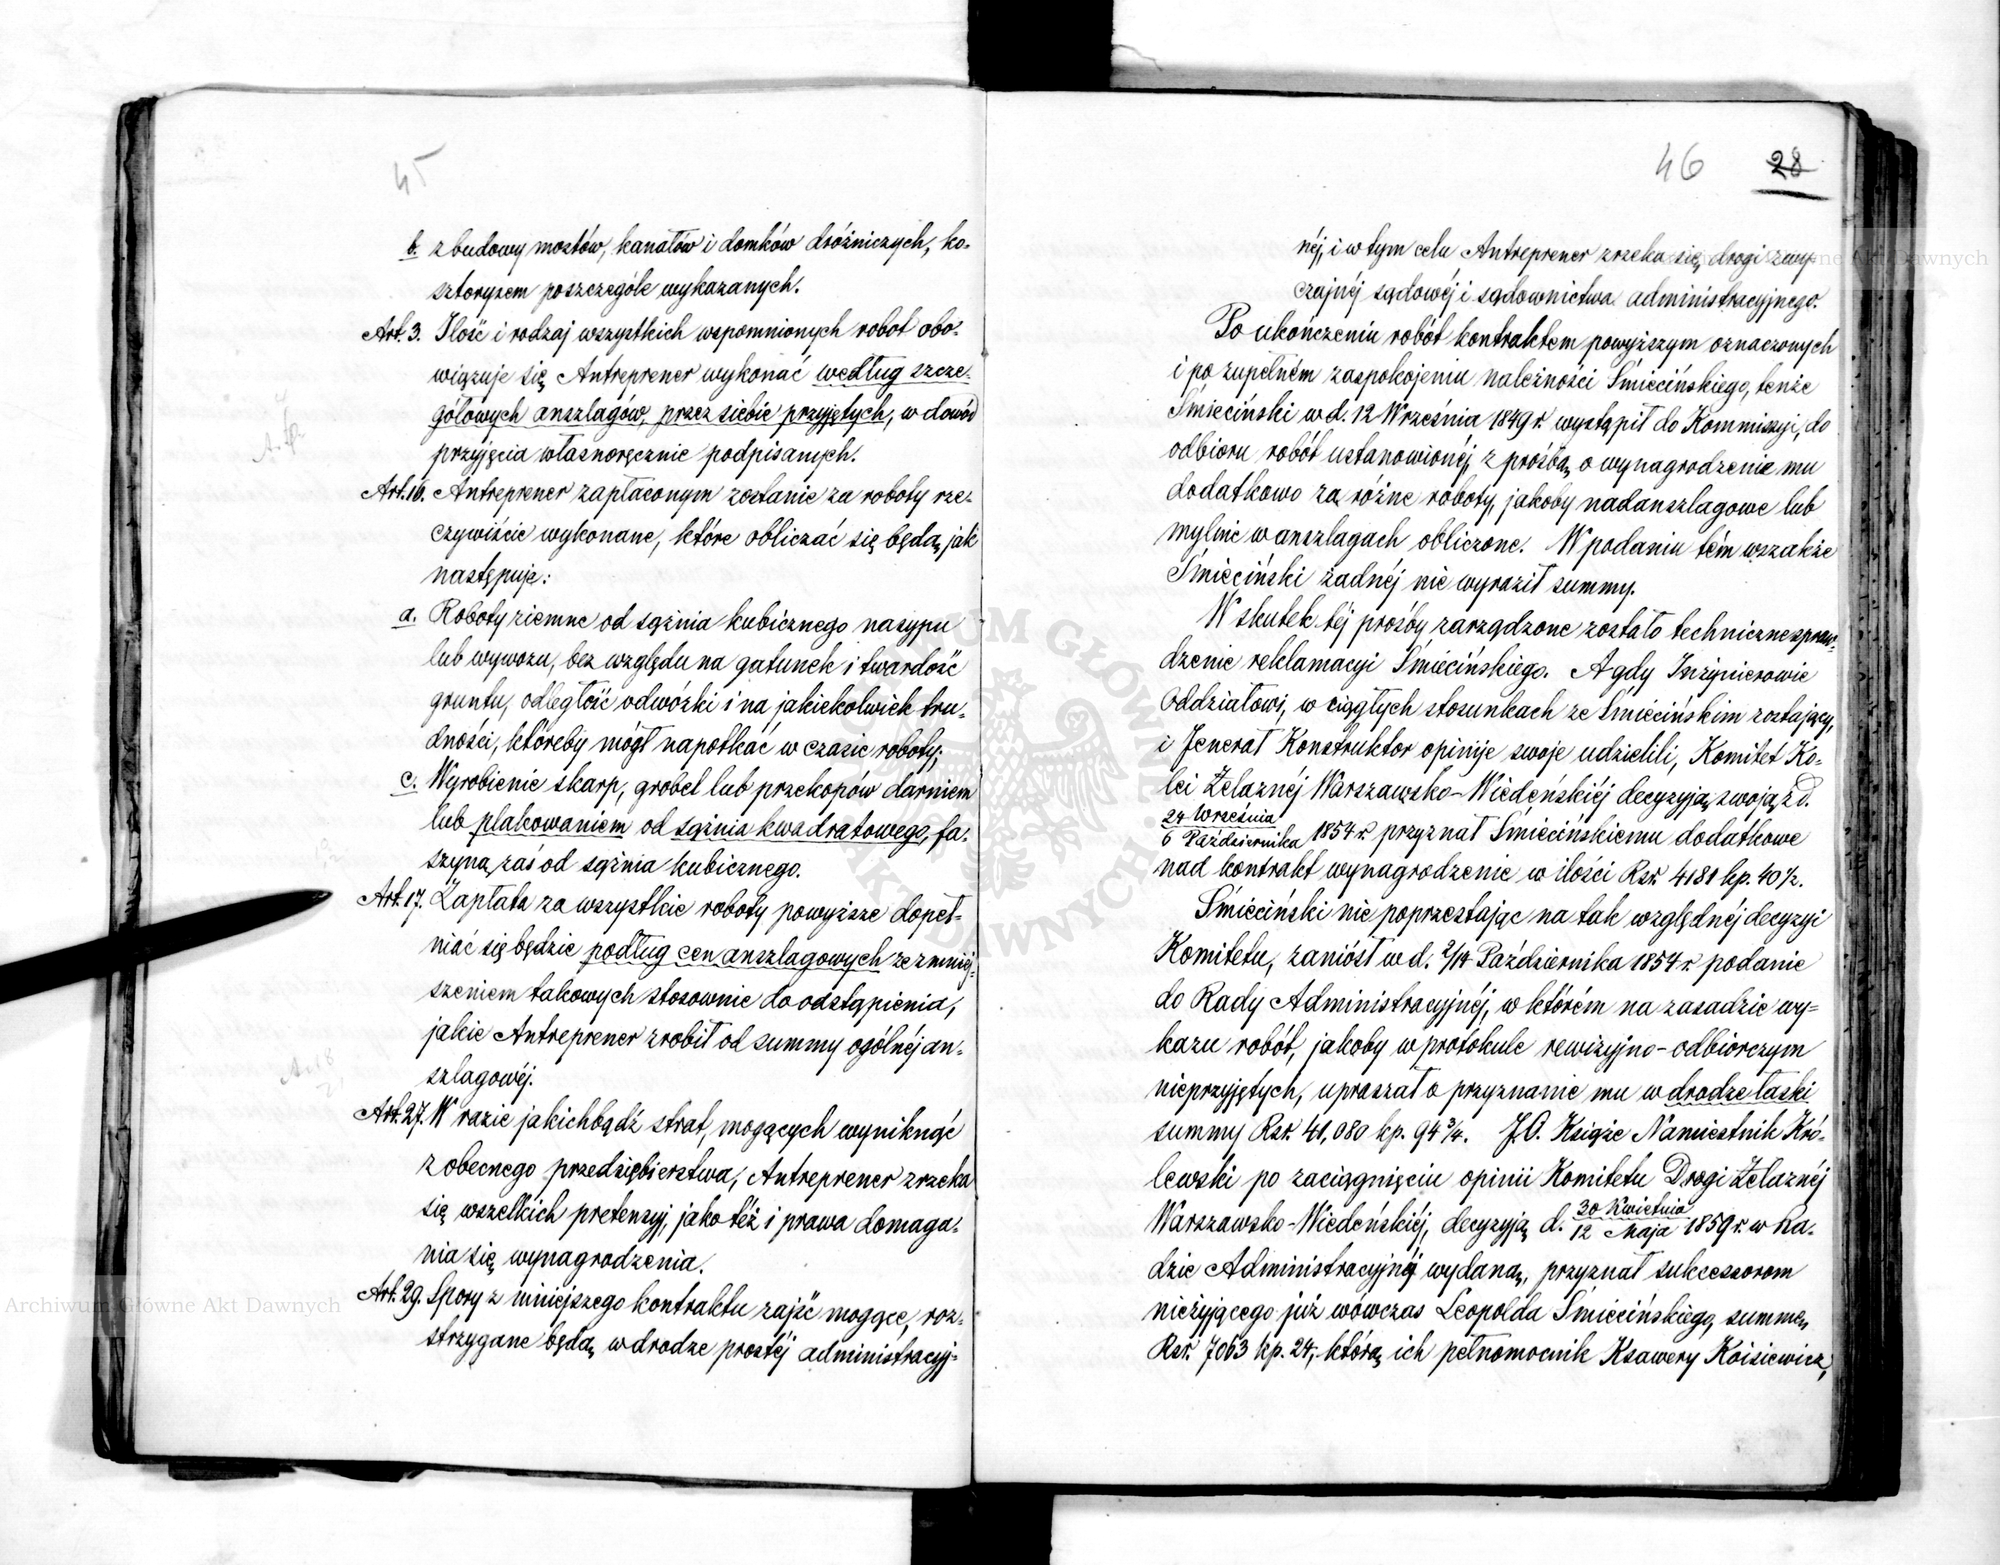 45
b. z budowy mostów, kanałów i domków dróżniczych, ko-
sztorysem poszczególe wykazanych.
Art. 3. Ilość i rodzaj wszystkich wspomnionych robot obo-
wiązuje się Antreprener wykonać według szcze-
gółowych anszlagów, przez siebie przyjętych, w dowód
przyjęcia własnoręcznie podpisanych.
Art. 16. Antreprener zapłaconym zostanie za roboty rze-
czywiście wykonane, które obliczać się będą, jak
następuje:
a. Roboty ziemne od sążnia kubicznego nasypu
lub wywozu, bez względu na gatunek i twardość
gruntu, odległość odwózki i na jakiekolwiek tru-
dności, któreby mógł napotkać w czasie roboty;
c. Wyrobienie skarp, grobel lub przekopów darniem
lub plakowaniem od sążnia kwadratowego, fa-
szyną zaś od sążnia kubicznego.
Art. 17. Zapłata za wszystkie roboty powyższe dopeł-
niać się będzie podług cen anszlagowych ze zmniej-
szeniem takowych stosownie do odstąpienia,
jakie Antreprener zrobił od summy ogólnéj an-
szlagowéj.
Art. 27. W razie jakichbądź strat, mogących wyniknąć
z obecnego przedsiębierstwa, Antreprener zrzeka
się wszelkich pretensyj, jako téż i prawa domaga-
nia się wynagrodzenia.
Art. 29. Spory z niniejszego kontraktu zajść mogące, roz-
strzygane będą, w drodze prostéj administracyj-
46 28
néj, i w tym celu Antreprener zrzeka się drogi zwy-
czajnéj sądowéj i sądownictwa administracyjnego.
Po ukończeniu robót kontraktem powyższym oznaczonych
i po zupełném zaspokojeniu należności Śmiecińskiego, tenże
Śmieciński w d. 12 Września 1849 r. wystąpił do Kommissyi, do
odbioru robót ustanowionéj, z prośbą o wynagrodzenie mu
dodatkowo za różne roboty, jakoby nadanszlagowe lub
mylnie w anszlagach obliczone. W podaniu tém wszakże
Śmieciński żadnéj nie wyraził summy.
W skutek téj prośby zarządzone zostało techniczne spraw-
dzenie reklamacyi Śmiecińskiego. A gdy Inżynierowie
Oddziałowi, w ciągłych stosunkach ze Śmiecińskim zostający,
i Jenerał Konstruktor opinije swoje udzielili, Komitet Ko-
lei Żelaznéj Warszawsko-Wiedeńskiéj decyzyją swoją z d.
24 Września
6 Października 1854 r. przyznał Śmiecińskiemu dodatkowe
nad kontrakt wynagrodzenie w ilości Rsr. 4181 kp. 40½.
Śmieciński nie poprzestając na tak względnéj decyzyi
Komitetu, zaniósł w d. 2/14 Października 1854 r. podanie
do Rady Administracyjnéj, w którém na zasadzie wy-
kazu robót, jakoby w protokule rewizyjno-odbiorczym
nieprzyjętych, upraszał o przyznanie mu w drodze łaski
summy Rsr. 41,080 kp. 94¾. J.O. Książe Namiestnik Kró-
lewski po zaciągnięciu opinii Komitetu Drogi Żelaznéj
Warszawsko-Wiedeńskiéj, decyzyją d. 30 Kwietnia
12 Maja 1859 r. w Ra-
dzie Administracyjnéj wydaną, przyznał sukcessorom
nieżyjącego już wówczas Leopolda Śmiecińskiego, summę
Rsr. 7063 kp. 24, którą ich pełnomocnik Ksawery Koisiewicz,
Archiwum Główne Akt Dawnych